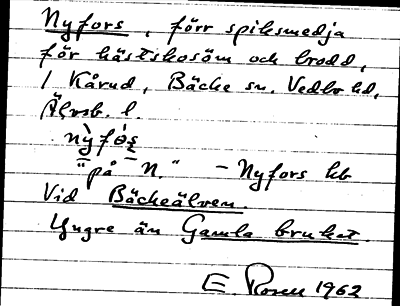 Nyfors, förr spiksmedja
för hästskosöm och brodd,
/ Kårud, Bäcke sn. Vedbo hd,
Älvsb. l.
nỳfȯș
"på N." – Nyfors hb
Vid Bäckeälven.
Yngre än Gamla bruket.
E Rosen 1962